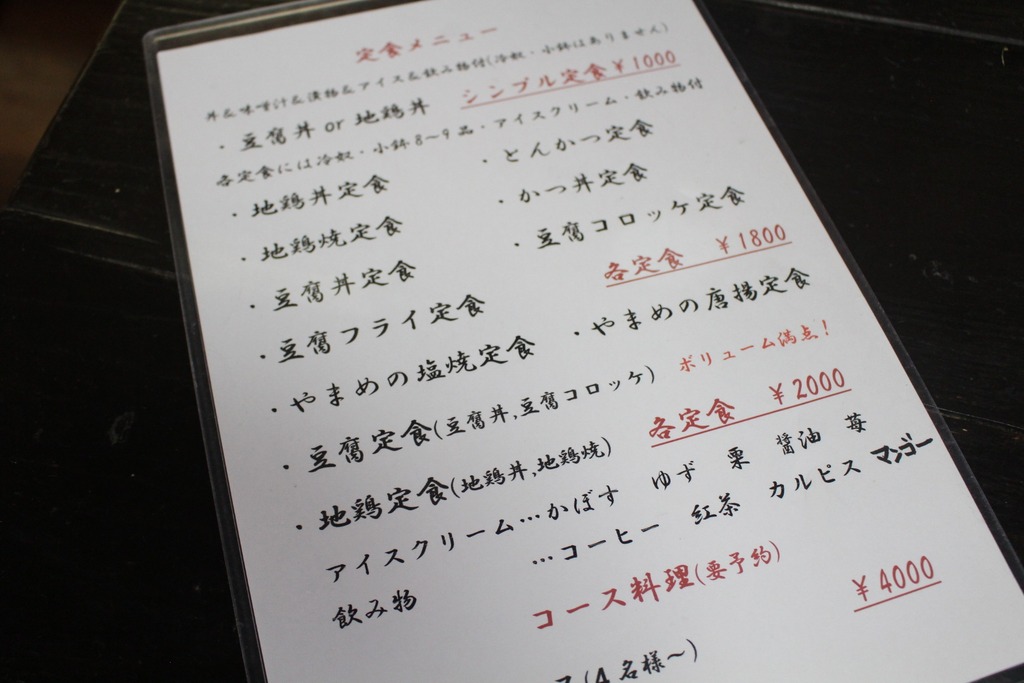 定食メニュー
丼&味噌汁&漬物&アイス&飲み物付(冷奴・小鉢はありません)
・豆腐丼 or 地鶏丼 シンプル定食¥1000
各定食には冷奴・小鉢8〜9品・アイスクリーム・飲み物付
・地鶏丼定食 ・とんかつ定食
・地鶏焼定食 ・かつ丼定食
・豆腐丼定食 ・豆腐コロッケ定食
・豆腐フライ定食 各定食 ¥1800
・やまめの塩焼定食 ・やまめの唐揚定食
・豆腐定食(豆腐丼,豆腐コロッケ) ボリューム満点!
・地鶏定食(地鶏丼,地鶏焼) 各定食 ¥2000
アイスクリーム…かぼす ゆず 栗 醤油 苺 マンゴー
飲み物 …コーヒー 紅茶 カルピス
コース料理(要予約) ¥4000
(4名様〜)